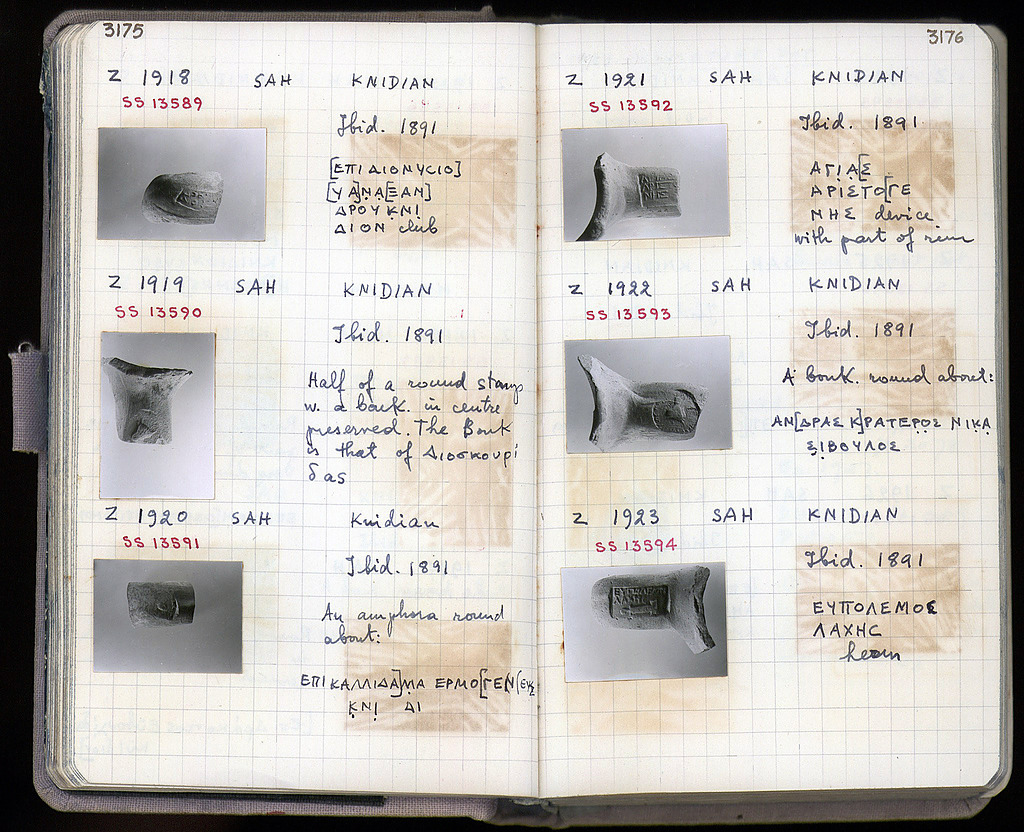 3175
Z 1918 SAH KNIDIAN
SS 13589
Ibid. 1891
[ΕΠΙ ΔΙΟΝΥCΙΟ]
[Υ Α]ΝΑ[ΞΑΝ]
ΔΡΟΥ ΚΝΙ
ΔΙΟΝ club
Z 1919 SAH KNIDIAN
SS 13590
Ibid. 1891
Half of a round stamp
w. a bouk. in centre
preserved. The Bouk
is that of Διοσκουρί
δας
Z 1920 SAH Knidian
SS 13591
Ibid. 1891
An amphora round
about:
ΕΠΙ ΚΑΛΛΙΔΑ]ΜΑ ΕΡΜΟ[ΓΕΝ(ΕΥΣ
ΚΝΙ ΔΙ
3176
Z 1921 SAH KNIDIAN
SS 13592
Ibid. 1891
ΑΓΙΑ[Σ
ΑΡΙΣΤΟ[ΓΕ
ΝΗΣ device
with part of rim
Z 1922 SAH KNIDIAN
SS 13593
Ibid. 1891
A bouk. round about:
ΑΝ[ΔΡΑΣ Κ]ΡΑΤΕΡΟΣ ΝΙΚΑ
ΣΙΒΟΥΛΟΣ
Z 1923 SAH KNIDIAN
SS 13594
Ibid. 1891
ΕΥΠΟΛΕΜΟΣ
ΛΑΧΗC